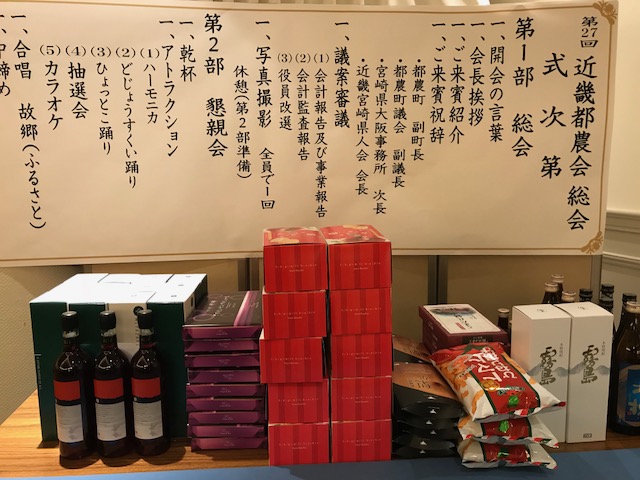 第27回 近畿都農会 総会
式次第
第1部 総会
一、開会の言葉
一、会長挨拶
一、ご来賓紹介
一、ご来賓祝辞
・都農町 副町長
・都農町議会 副議長
・宮崎県大阪事務所 次長
・近畿宮崎県人会 会長
一、議案審議
(1) 会計報告及び事業報告
(2) 会計監査報告
(3) 役員改選
一、写真撮影 全員で一回
休憩(第2部準備)
第2部 懇親会
一、乾杯
一、アトラクション
(1) ハーモニカ
(2) どじょうすくい踊り
(3) ひょっとこ踊り
(4) 抽選会
(5) カラオケ
一、合唱 故郷(ふるさと)
一、中締め
霧島
霧島